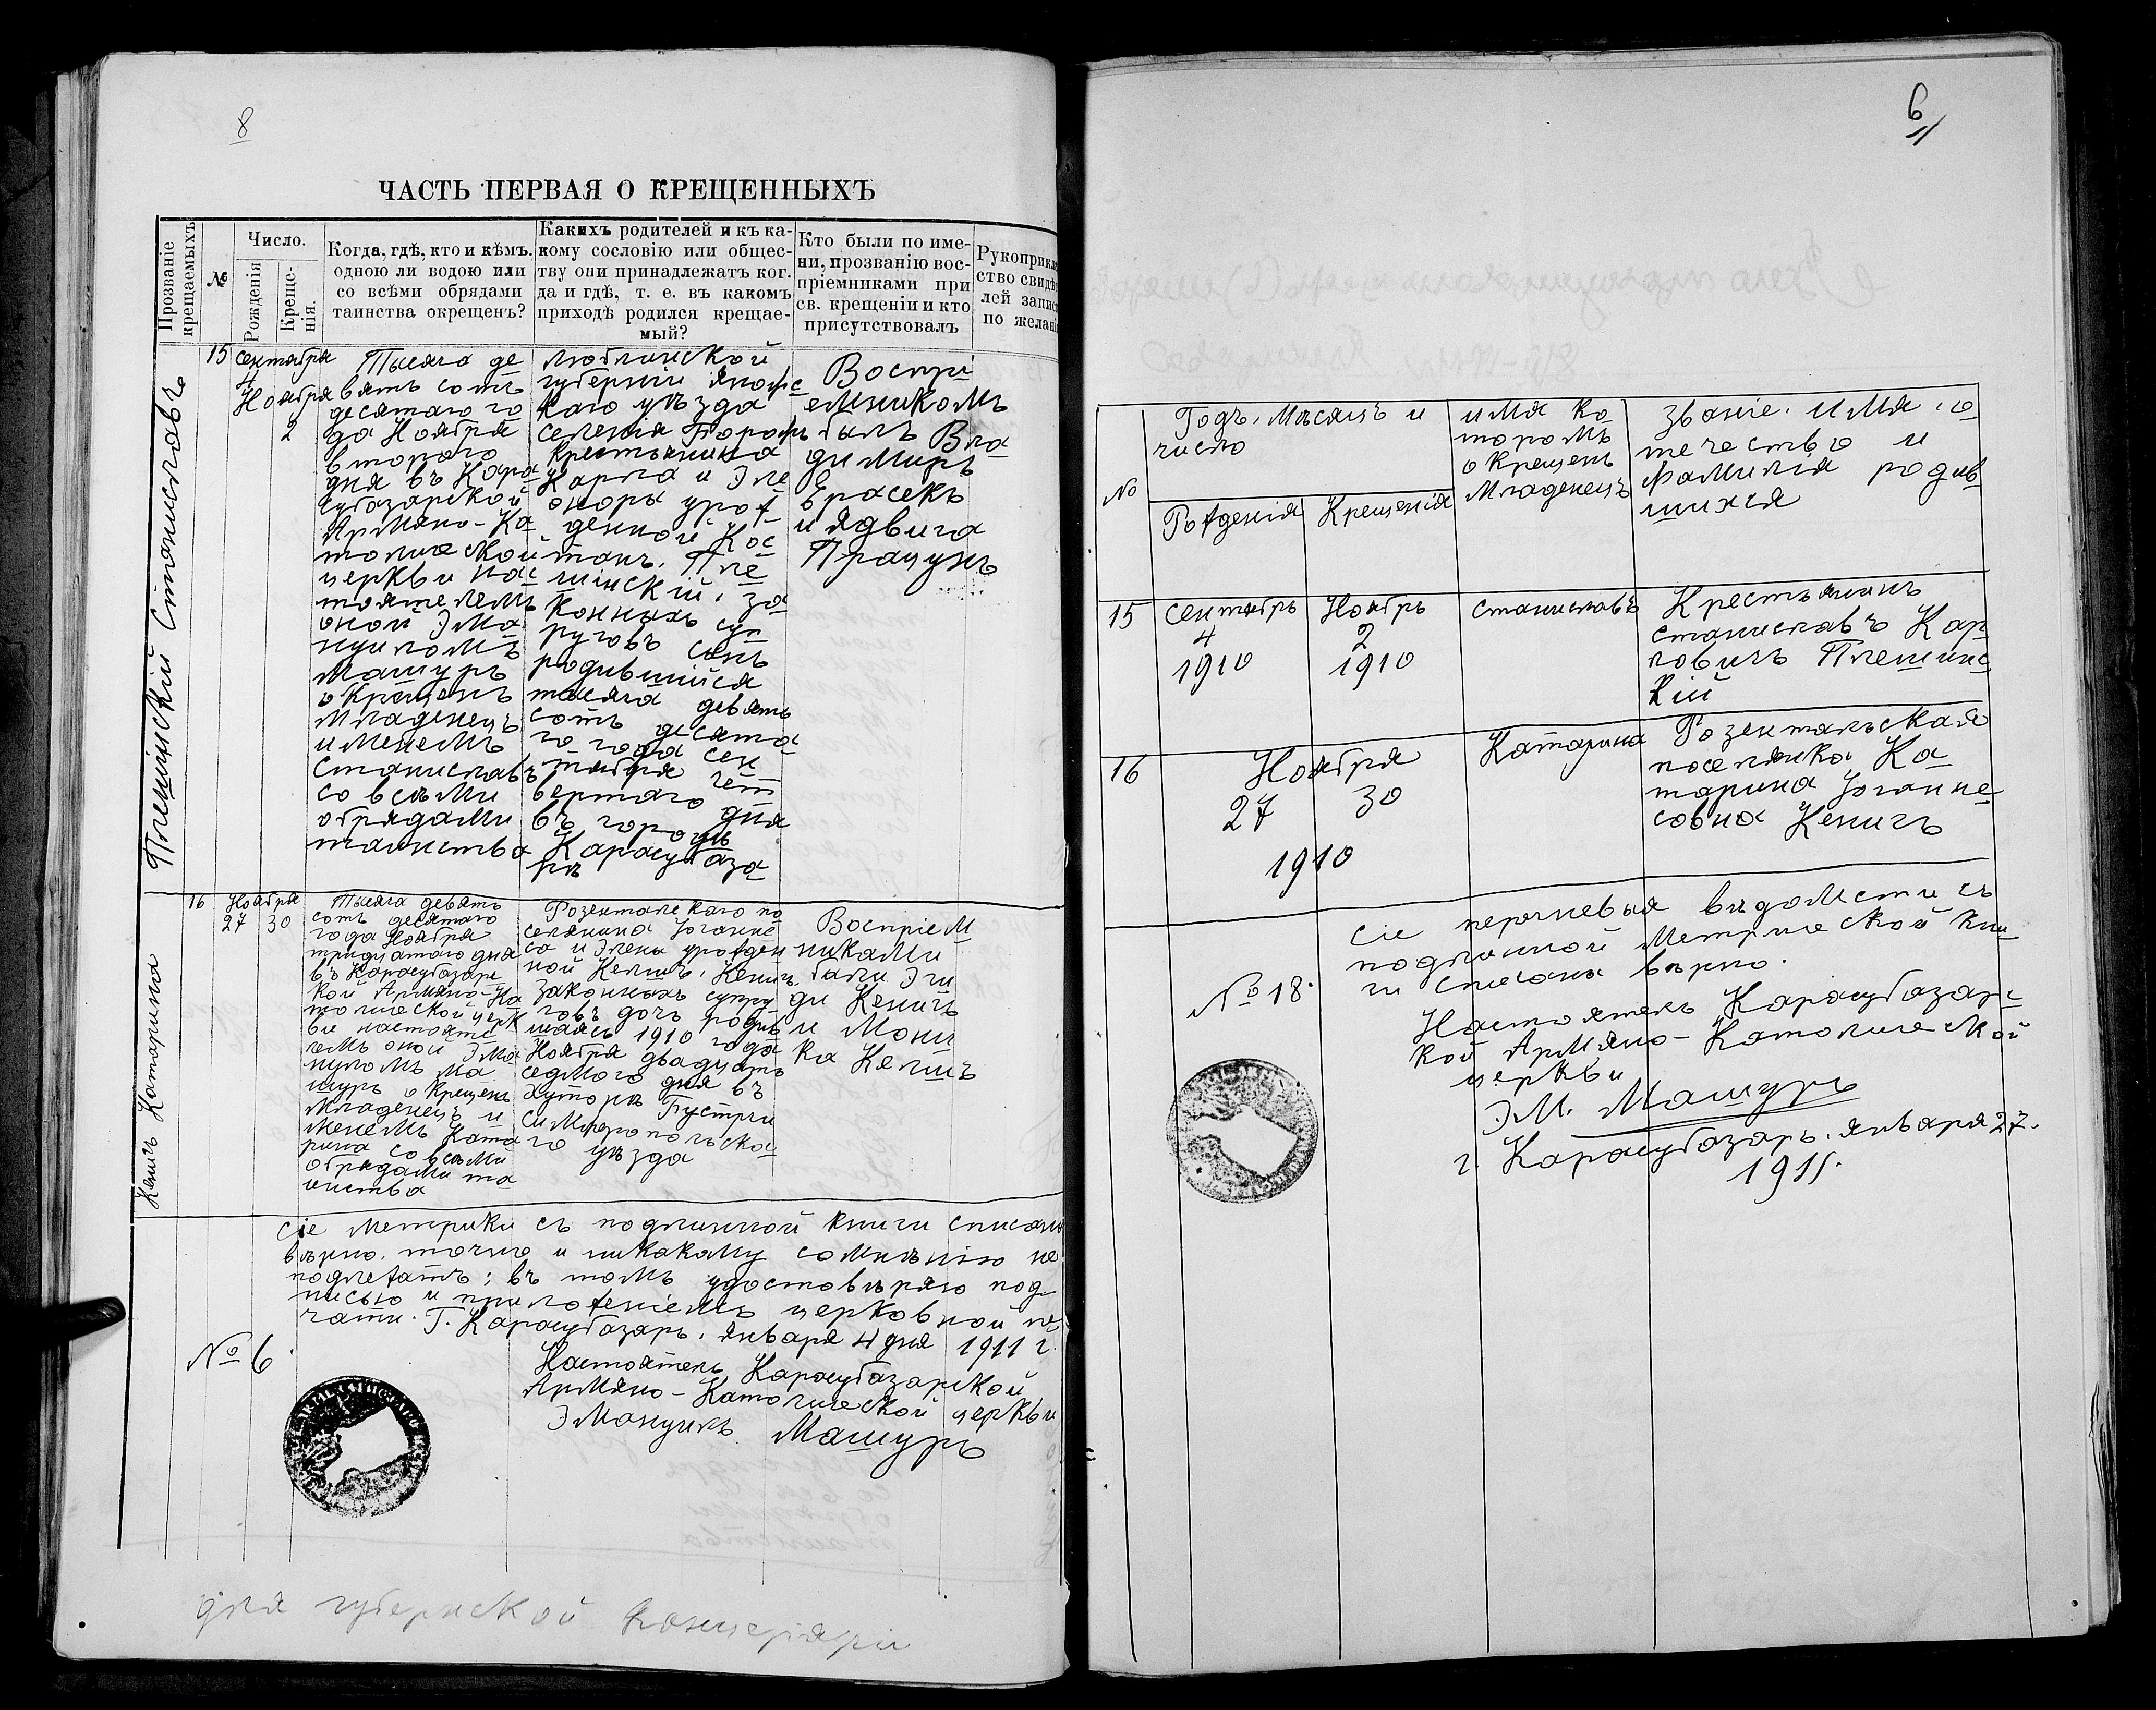 8
ЧАСТЬ ПЕРВАЯ О КРЕЩЕННЫХЪ
Прозваніе
крещаемыхъ
№
Число.
Рожденія
Креще-
нія.
Когда, гдѣ, кто и кѣмъ.
одною ли водою или
со всѣми обрядами
таинства окрещенъ?
Какихъ родителей и къ ка-
кому сословію или общес-
тву они принадлежатъ ког.
да и гдѣ, т. е. въ какомъ
приходѣ родился крещае-
мый?
Кто были по име-
ни, прозванію вос-
пріемниками при
св. крещеніи и кто
присутствовалъ
Рукоприкл
ство свидѣ
лей запис
по желані
Плешінскій Станиславъ
15
сентября
4
Ноября
2
Тысяча де
вять сотъ
десятаго го
да Ноября
второго
дня въ Кара
субазарской
Армяно-Ка
толической
церкви нас
тоятелемъ
оной Эма
нуиломъ
Машуръ
окрещенъ
младенецъ
именемъ
Станиславъ
со всѣми
обрядами
таинства
Люблинской
губерніи Яновс
каго уѣзда
селенія
крестьянина
Карла и Эле
оноры урож
денной Кос
танъ. Пле
шінскій, за
конныхъ суп
руговъ сынъ
родившійся
тысяча девять
сотъ десята
го года сен
тября чет
вертаго дня
въ городѣ
Карасубаза
рѣ
Воспрі
емникомъ
былъ Вла
димиръ
Врасекъ
и Ядвига
Працукъ
Кенигъ Катарина
16
Ноября
27 30
Тысяча девять
сотъ десятаго
года Ноября
тридцатаго дня
въ Карасубазарс
кой Армяно-Ка
толической церк
ви настояте
лемъ оной Эма
нуиломъ Ма
шуръ окрещенъ
младенецъ и
менемъ Ката
рина со всѣми
обрядами та
инства
Розентальскаго по
селянина Іоганне
са и Элены урожден
ной Келшъ. Кенигъ
законныхъ супру
говъ дочь родив
шаяся 1910 года
Ноября двадцать
седмого дня въ
хуторѣ Бустрчи
Симферопольска
го уѣзда
Воспріем
никами
были Эги
ди Кенигъ
и Мони
ка Келшъ
Сіе метрики съ подлинной книги списаны
вѣрно, точно и никакому сомнѣнію не
подлежатъ; въ томъ удостовѣряю под
писью и приложеніемъ церковной пе
чати. Г. Карасубазаръ. Января 4 дня 1911 г.
№ 6.
Настоятель Карасубазарской
Армяно-Католической церкви
Эмануилъ Машуръ
для губернской Канцеляріи
6
11
№
Годъ, мѣсяцъ и
число
Рожденія
Крещенія
имя ко
торомъ
окрещенъ
младенецъ
званіе, имя, о
течество и
фамилія родив
шихся
15
сентябрь
4
1910
Ноябрь
2
1910
Станиславъ
Крестьянинъ
Станиславъ Кар
ловичъ Плешинс
кій
16
Ноября
27 30
1910
Катарина
Розентальская
поселянка Ка
тарина Іоганне
совна Кенигъ
Сіе перечневыя вѣдомости съ
подлинной Метрической кни
ги списаны вѣрно.
№ 18.
Настоятель Карасубазарс
кой Армяно-Католической
церкви
Эм. Машуръ
г. Карасубазаръ. января 27.
1911.